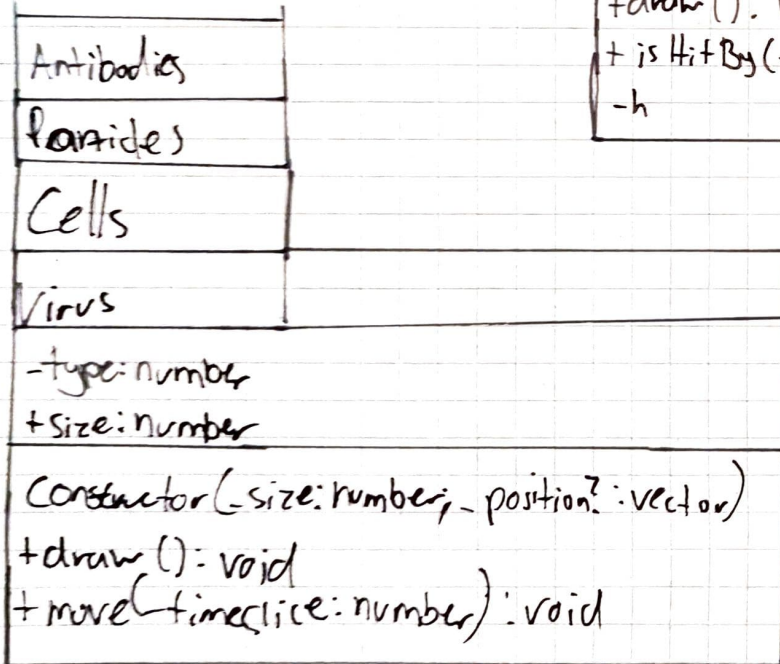 Antibodies
Particles
Cells
Virus
-type:number
+size:number
constructor(_size:number; _position?:vector)
+draw():void
+move(_timeslice:number):void
+draw().
+ isHitBy(
-h